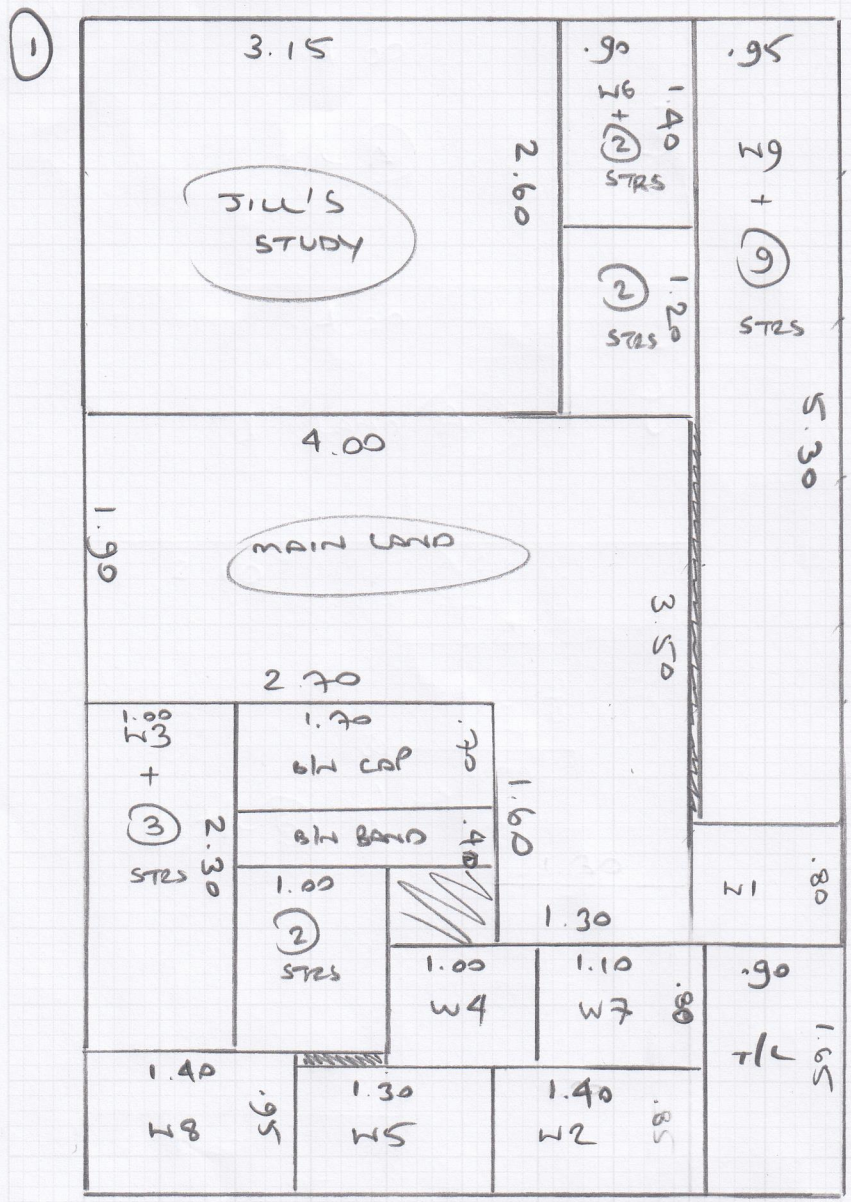 1
3.15
JILL'S
STUDY
2.60
.90
W6
+
2
STRS
1.40
2
STRS
1.20
.95
W9
+
9
STRS
5.30
4.00
MAIN LAND
1.90
3.50
2.70
1.00
W3
+
3
STRS
2.30
1.70
B/N CAP
.70
B/N BAND
.40
1.60
1.00
2
STRS
1.30
W1
.80
1.00
W4
1.10
W7
.80
.90
T/L
1.65
1.40
W8
.95
1.30
W5
1.40
W2
.85